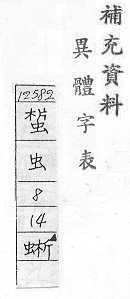 補充資料
異體字表
12582
虫
8
14
蜥